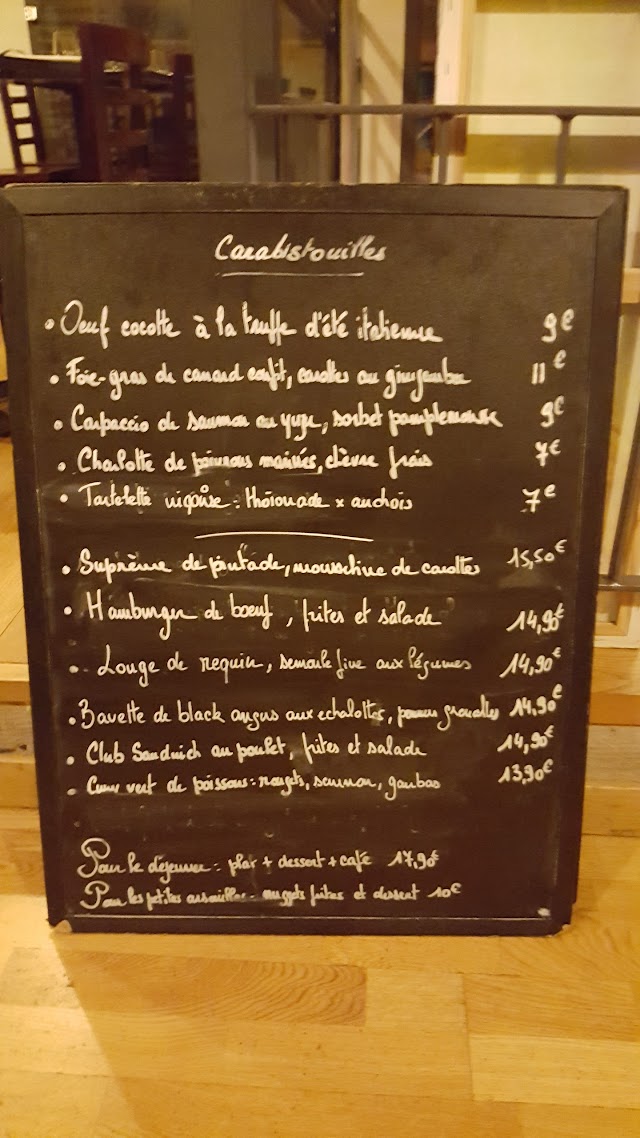 Carabistouilles
• Oeuf cocotte à la truffe d'été italienne 9€
• Foie-gras de canard confit, carottes au gingembre 11€
• Carpaccio de saumon au yuzu, sorbet pamplemousse 9€
• Charlotte de poivrons marinés, chèvre frais 7€
• Tartelette niçoise: thoïonade x anchois 7€
• Suprême de pintade, mousseline de carottes 15,50€
• Hamburger de boeuf, frites et salade 14,90€
• Longe de requin, semoule fine aux légumes 14,90€
• Bavette de black angus aux echalottes, pommes grenailles 14,90€
• Club Sandwich au poulet, frites et salade 14,90€
• Curry vert de poissons: rougets, saumon, gambas 13,90€
Pour le déjeuner: plat + dessert + café 17,90€
Pour les petites arsouilles: nuggets frites et dessert 10€